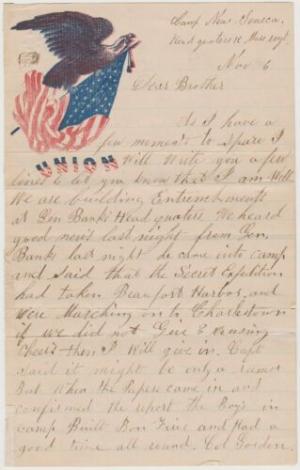 Camp Near Seneca,
Head quaters 12 Mass regt
Nov 6
Dear Brother
As I have a
few moments to Spare I
UNION
Will Write you a few
lines to let you know that I am Well
We are building Entrenchments
at Gen Banks Head quaters We heard
good news last night from Gen
Banks last night he came into camp
and Said that the Secret Expedition
had taken Beaufort Harbor and
were Marching on to Charlestown
if we did not Give 3 rousing
Cheers then I Will give in. Capt
Said it might be only a rumor
But When the Papers came in and
confirmed the report the Boys in
camp Built Bon Fires and Had a
good time all round. Col Gordon